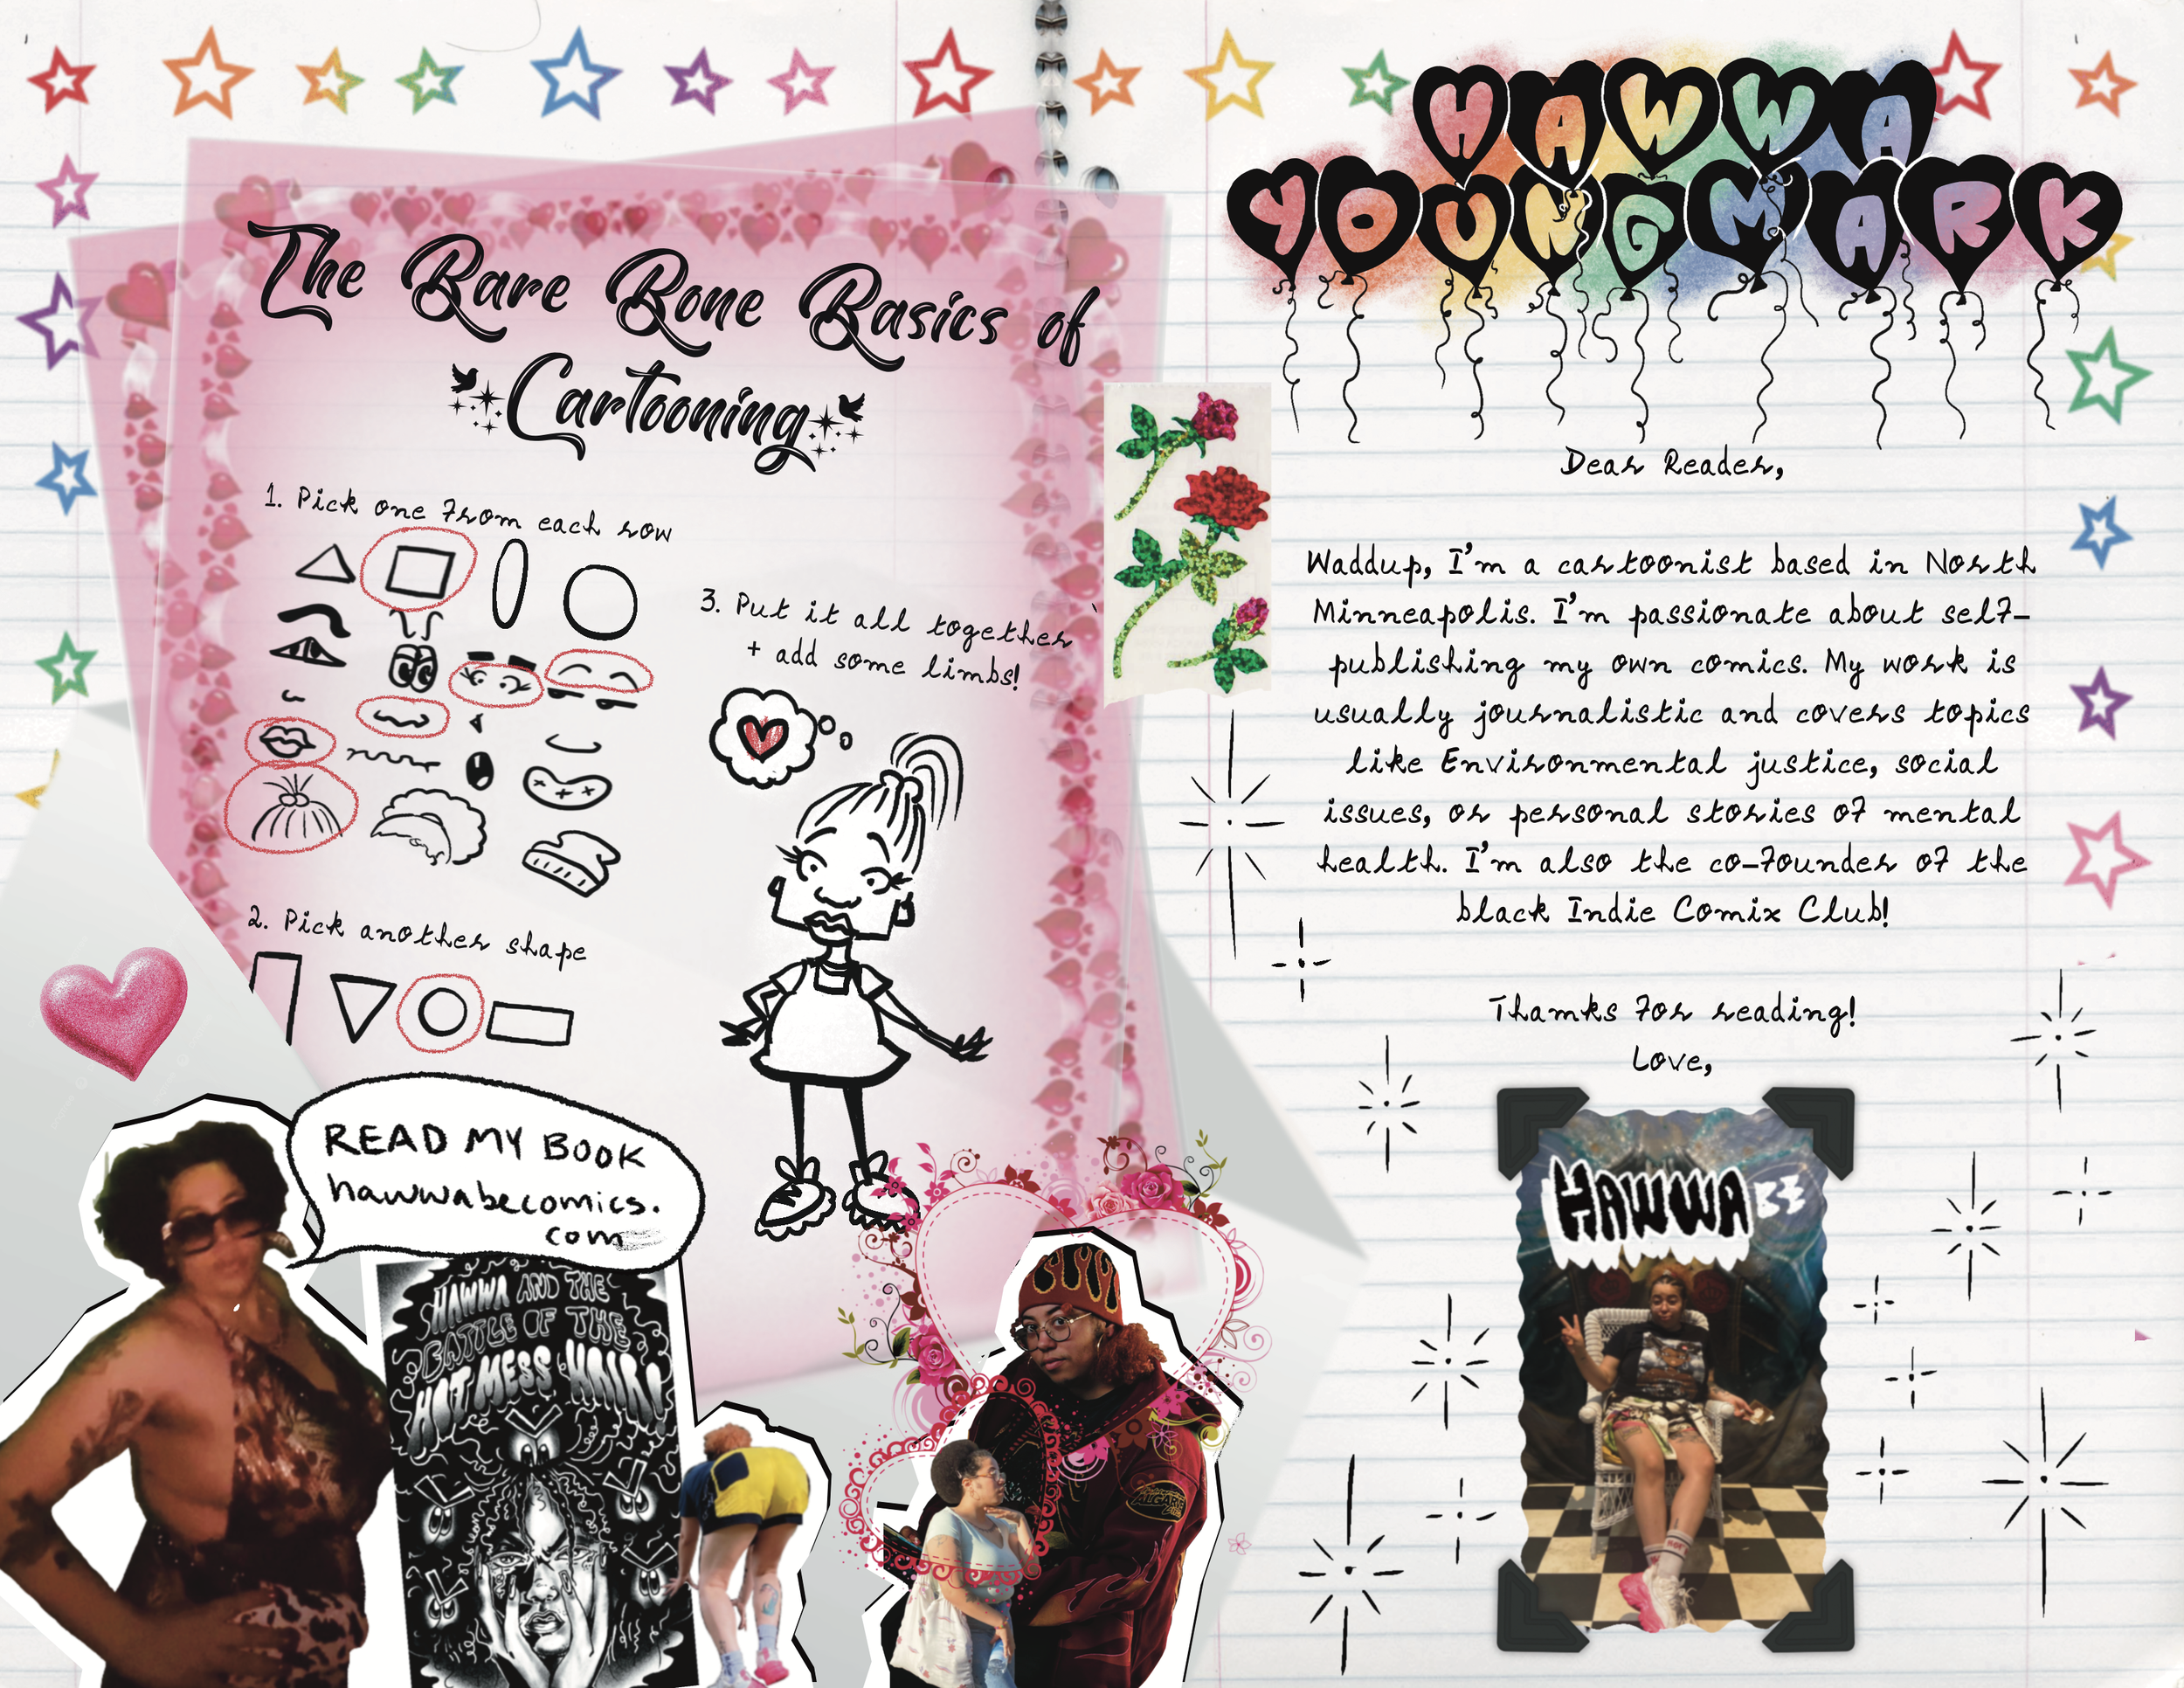 The Bare Bone Basics of
Cartooning
1. Pick one from each row
2. Pick another shape
3. Put it all together
+ add some limbs!
READ MY BOOK
hawwabecomics.
com
HAWWA AND THE
BATTLE OF THE
HOT MESS HAIR!
HAWWA
YOUNGMARK
Dear Reader,
Waddup, I'm a cartoonist based in North
Minneapolis. I'm passionate about self-
publishing my own comics. My work is
usually journalistic and covers topics
like Environmental justice, social
issues, or personal stories of mental
health. I'm also the co-founder of the
black Indie Comix Club!
Thamks for reading!
Love,
HAWWA BE